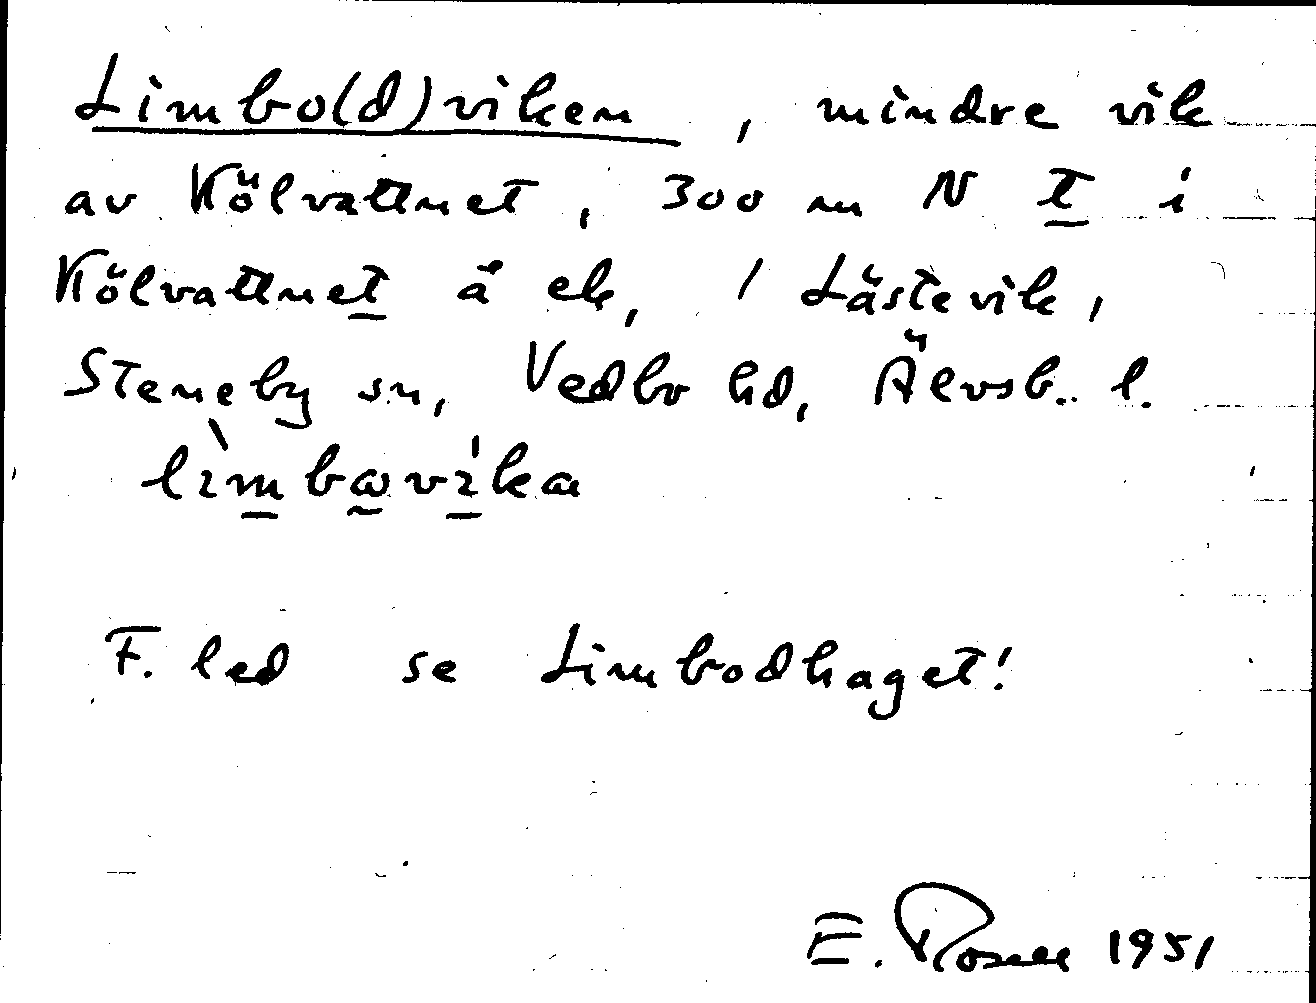 Limbo(d)viken, mindre vik
av Kölvattnet, 300 m N t i
Kölvattnet å ek, / Låstevik,
Steneby sn, Vedbo hd, Älvsb. l.
lìmbωvíka
F. led se Limbodhaget!
E. Rosell 1951